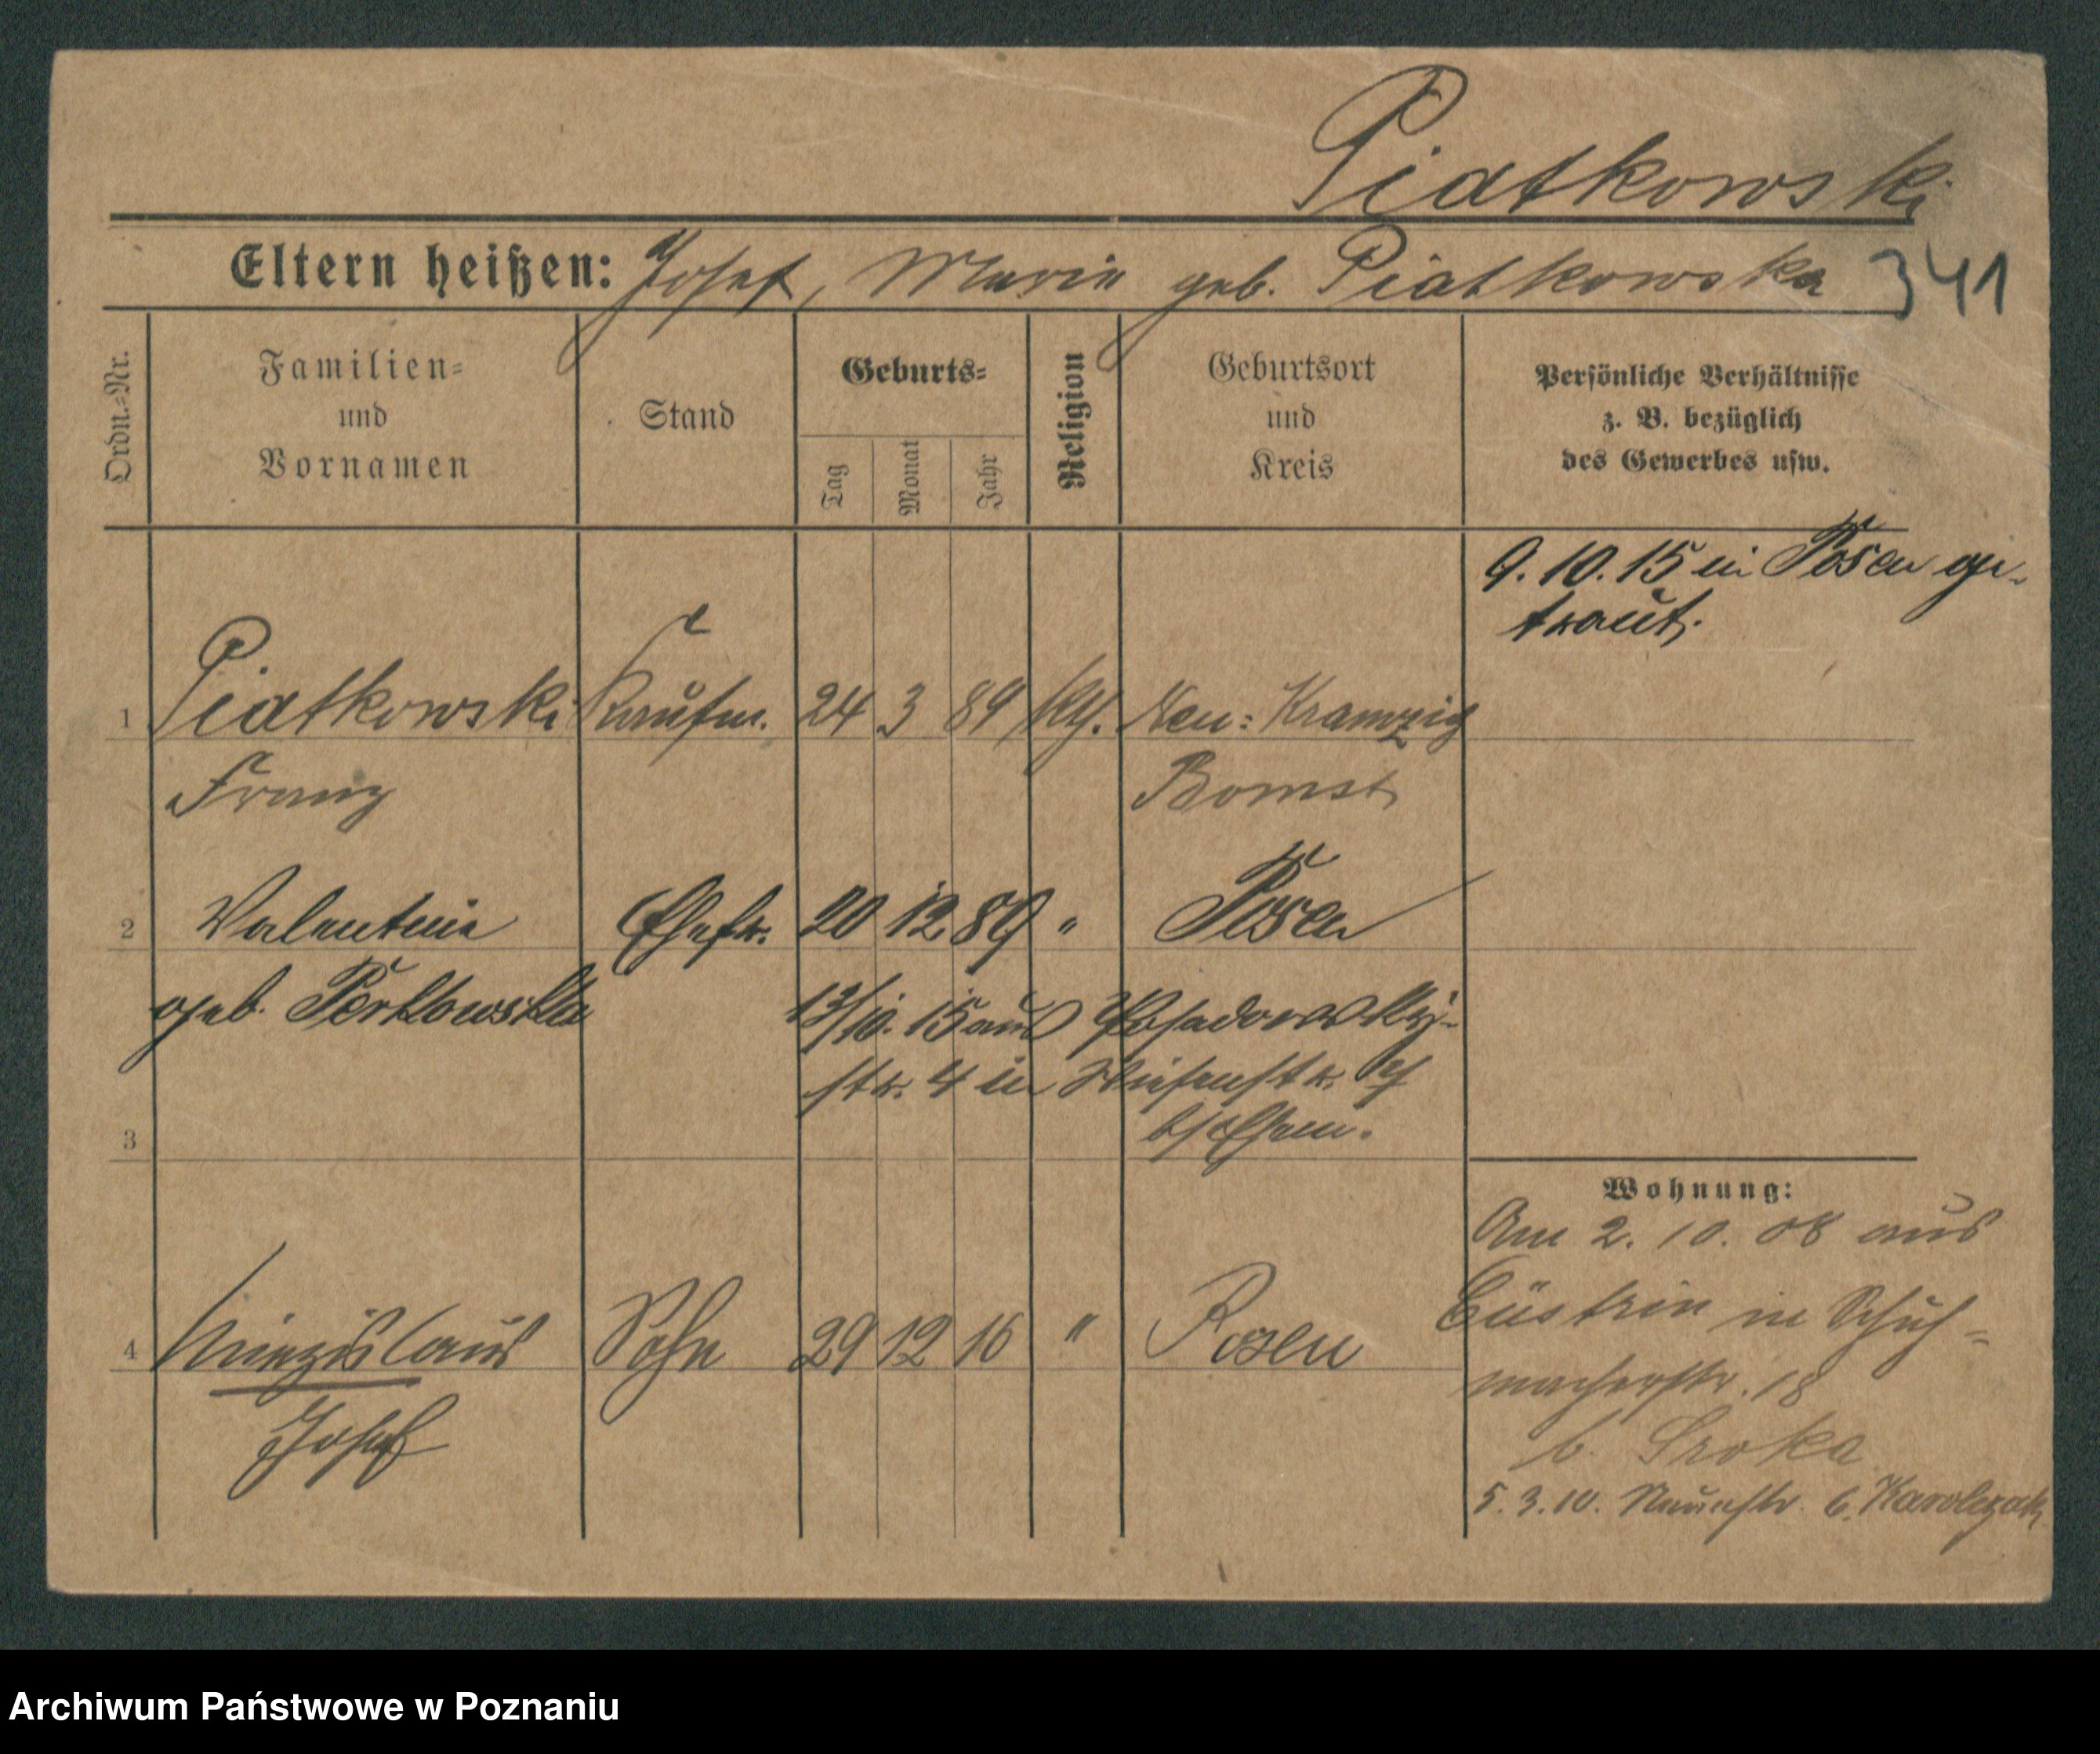 Piatkowski
Eltern heißen: Josef, Maria geb. Piatkowska 341
Ordn.=Nr.
Familien=
und
Vornamen
Stand
Geburts=
Tag
Monat
Jahr
Religion
Geburtsort
und
Kreis
Persönliche Verhältnisse
z. B. bezüglich
des Gewerbes usw.
9. 10. 15 in Posen ge-
traut.
1 Piatkowski Kaufm. 24 3 89 kth. Neu=Kramzig
Franz Bomst
2 Valentine Ehefr. 20 12 89 " Posen
geb. Perkowska
13/10. 15 aus Posadowsky-
str. 4 in Wiesenstr.
3
4 Miezislaus Sohn 29 12 16 " Posen
Josef
Wohnung:
Am 2. 10. 08 aus
Cüstrin in Schuh=
macherstr. 18
b. Sroka
5. 3. 10. b. Karolczak
Archiwum Państwowe w Poznaniu